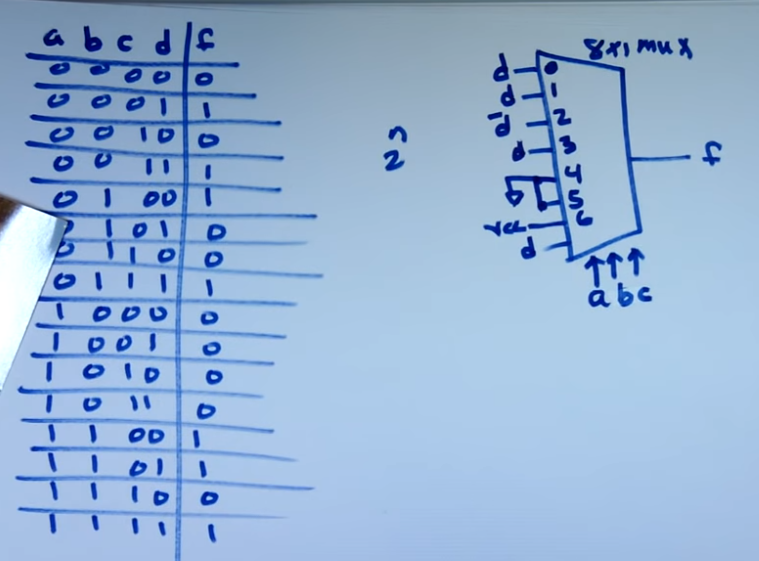 a b c d f
0 0 0 0 0
0 0 0 1 1
0 0 1 0 0
0 0 1 1 1
0 1 0 0 1
0 1 0 1 0
0 1 1 0 0
0 1 1 1 1
1 0 0 0 0
1 0 0 1 0
1 0 1 0 0
1 0 1 1 0
1 1 0 0 1
1 1 0 1 1
1 1 1 0 0
1 1 1 1 1
2ⁿ
8x1 mux
d 0
d 1
d̄ 2
d 3
4
5
6
d
f
a b c